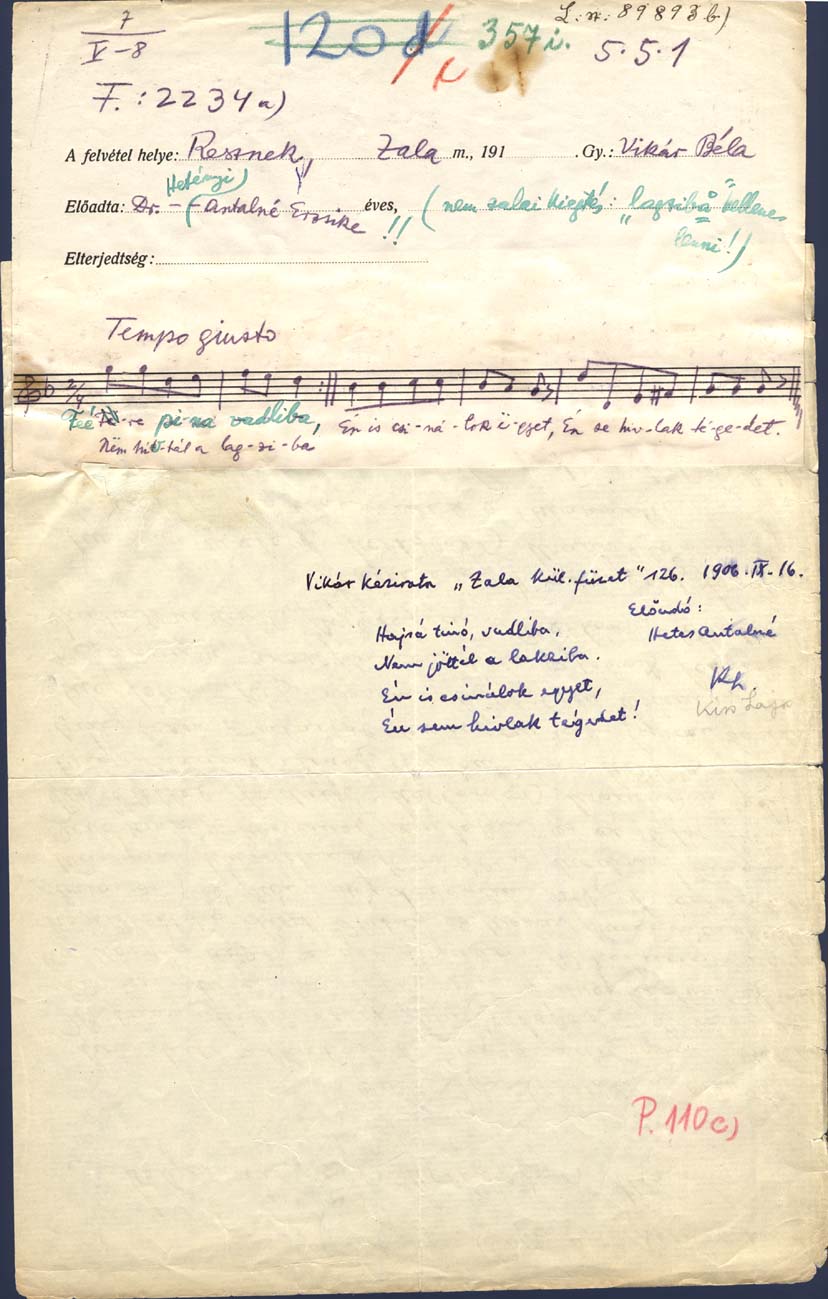 7
V-8
120d
357i.
L. sz: 89893b)
5.5.1
F.: 2234a)
A felvétel helye: Resznek, Zala m., 191 . Gy.: Vikár Béla
Hetényi
Előadta: Dr. – Antalné Erzsike !! éves, (nem zalai kiejtés: "lagzibå" kellene
lenni!)
Elterjedtség:
Tempo giusto
2/4
pi-na vadliba, Én is csi-ná-lok ë-gyet, Én se hiv-lak té-ge-det.
Nëm hit-tál a lag-zi-ba
Vikár kézirata "Zala kül. füzet" 126. 1906.IX.16.
Előadó:
Hajsá tinó, vadliba, Hetes Antalné
Nem jöttél a lakziba.
Én is csinálok egyet,
Én sem hivlak tégedet!
Kiss Lajos
P. 110c)